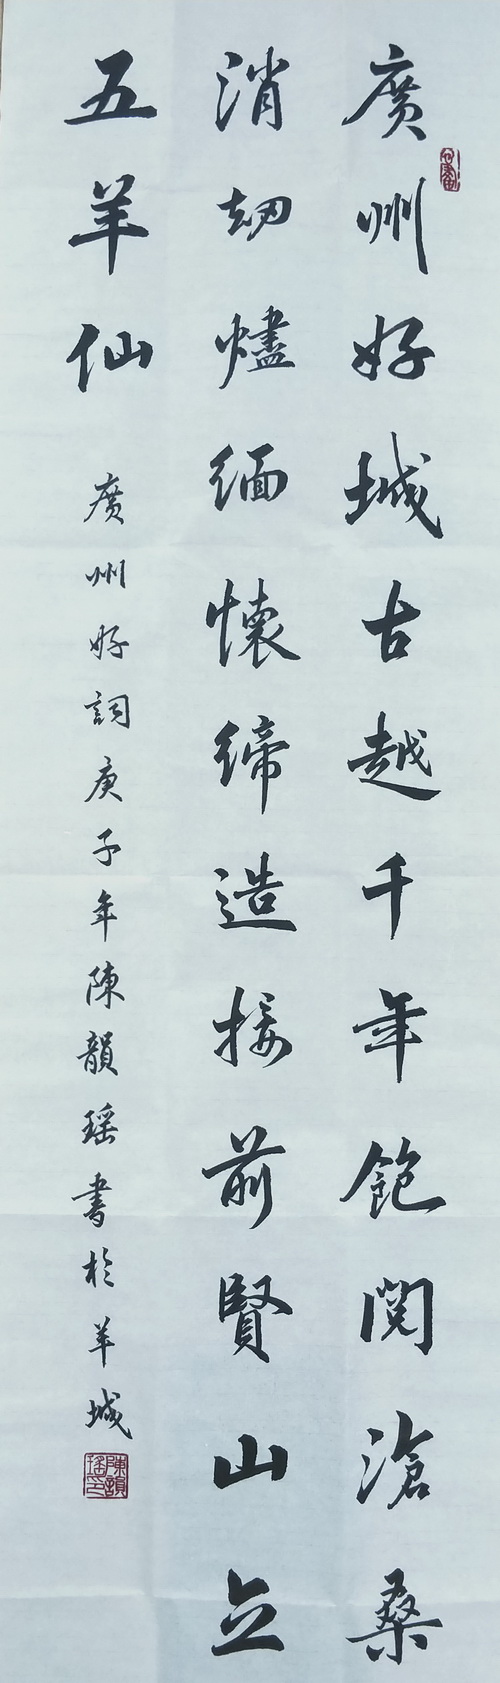 廣州好城古越千年飽閱滄桑
消劫燼緬懷締造接前賢山立
五羊仙
廣州好詞庚子年陳韻瑶書於羊城
陳韻瑤印